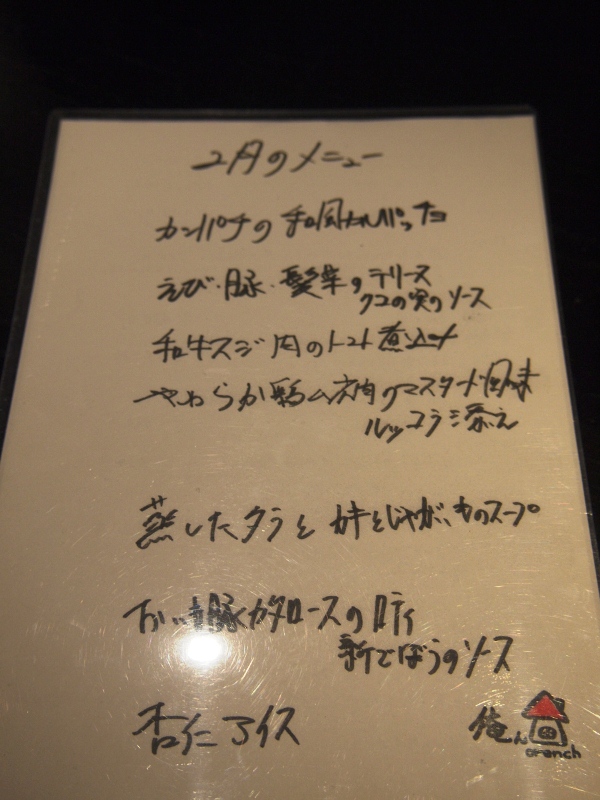 2月のメニュー
カンパチの和風カルパッチョ
えび・豚・髪菜のテリーヌ
クコの実のソース
和牛スジ肉のトマト煮込み
やわらか鶏ムネ肉のマスタード風味
ルッコラ添え
蒸したタラとカキとじゃがいものスープ
豚カタロースのロティ
新ごぼうのソース
杏仁アイス
俺ん
oranch